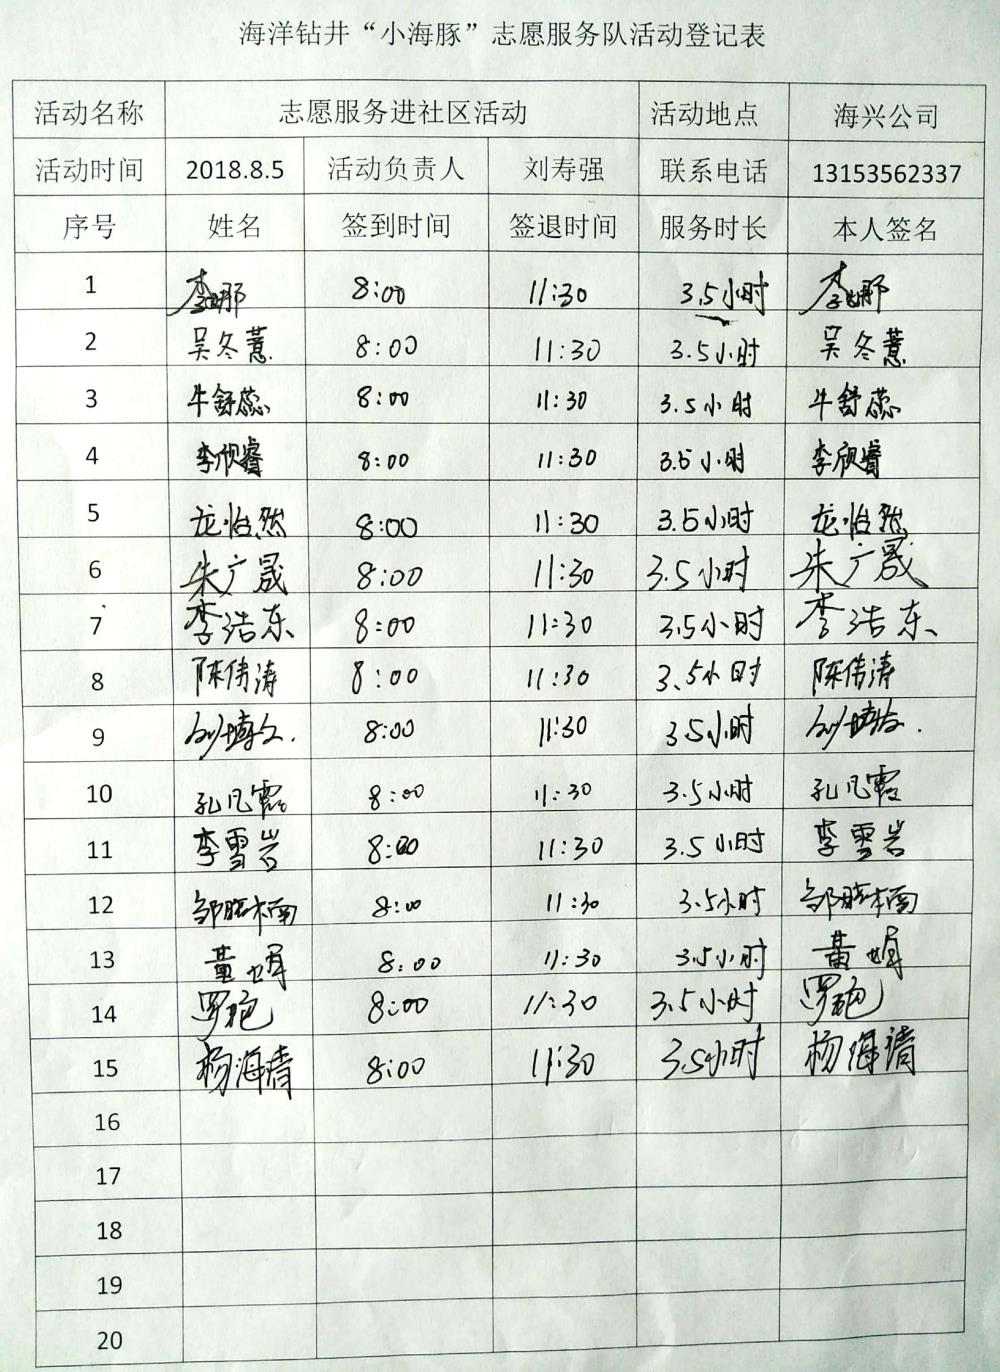 海洋钻井“小海豚”志愿服务队活动登记表
活动名称 志愿服务进社区活动 活动地点 海兴公司
活动时间 2018.8.5 活动负责人 刘寿强 联系电话 13153562337
序号 姓名 签到时间 签退时间 服务时长 本人签名
1 8:00 11:30 3.5小时
2 吴冬薏 8:00 11:30 3.5小时 吴冬薏
3 牛舒蕊 8:00 11:30 3.5小时 牛舒蕊
4 李欣睿 8:00 11:30 3.5小时 李欣睿
5 龙怡然 8:00 11:30 3.5小时 龙怡然
6 朱广晟 8:00 11:30 3.5小时 朱广晟
7 李浩东 8:00 11:30 3.5小时 李浩东
8 陈伟涛 8:00 11:30 3.5小时 陈伟涛
9 8:00 11:30 3.5小时
10 孔凡霞 8:00 11:30 3.5小时 孔凡霞
11 李雪岩 8:00 11:30 3.5小时 李雪岩
12 8:00 11:30 3.5小时
13 黄娟 8:00 11:30 3.5小时 黄娟
14 8:00 11:30 3.5小时
15 杨海清 8:00 11:30 3.5小时 杨海清
16
17
18
19
20